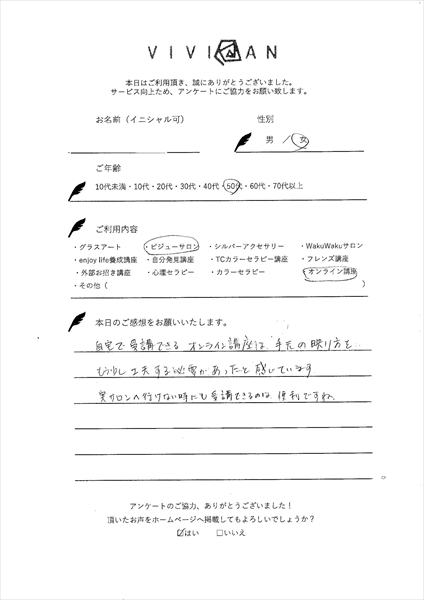 VIVIAN
本日はご利用頂き、誠にありがとうございました。
サービス向上ため、アンケートにご協力をお願い致します。
お名前（イニシャル可） 性別
男 ／ 女
ご年齢
10代未満・10代・20代・30代・40代・50代・60代・70代以上
ご利用内容
・グラスアート ・ビジューサロン ・シルバーアクセサリー ・WakuWakuサロン
・enjoy life養成講座 ・自分発見講座 ・TCカラーセラピー講座 ・フレンズ講座
・外部お招き講座 ・心理セラピー ・カラーセラピー ・オンライン講座
・その他（ ）
本日のご感想をお願いいたします。
自宅で受講できるオンライン講座は、手元の映り方を
もう少し工夫する必要があったと感じています
実サロンへ行けない時にも受講できるのは便利ですね
アンケートのご協力、ありがとうございました！
頂いたお声をホームページへ掲載してもよろしいでしょうか？
☑はい □いいえ